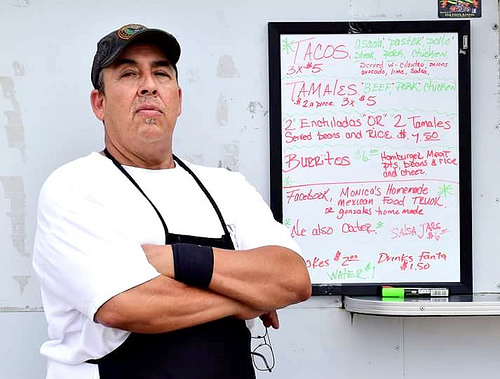 TACOS. asada, pastor, pollo
3x$5 Steak, Pork, Chicken
Served w- cilantro, onions
avocado, lime, salsa,
TAMALES "BEEF, PORK, CHICKEN
$2 a piece 3x $5
2 Enchiladas "OR" 2 Tamales
Served beans and RICE. $7.50
BURRITOS $6.00 Hamburger Meat
pts, beans & rice
and cheez
Facebook, Monica's Homemade
mexican Food TRUCK.
or gonzalas homemade
We also Cater. SALSA JARS
$6
okes $2.00 Drinks fanta
WATER $1 $1.50